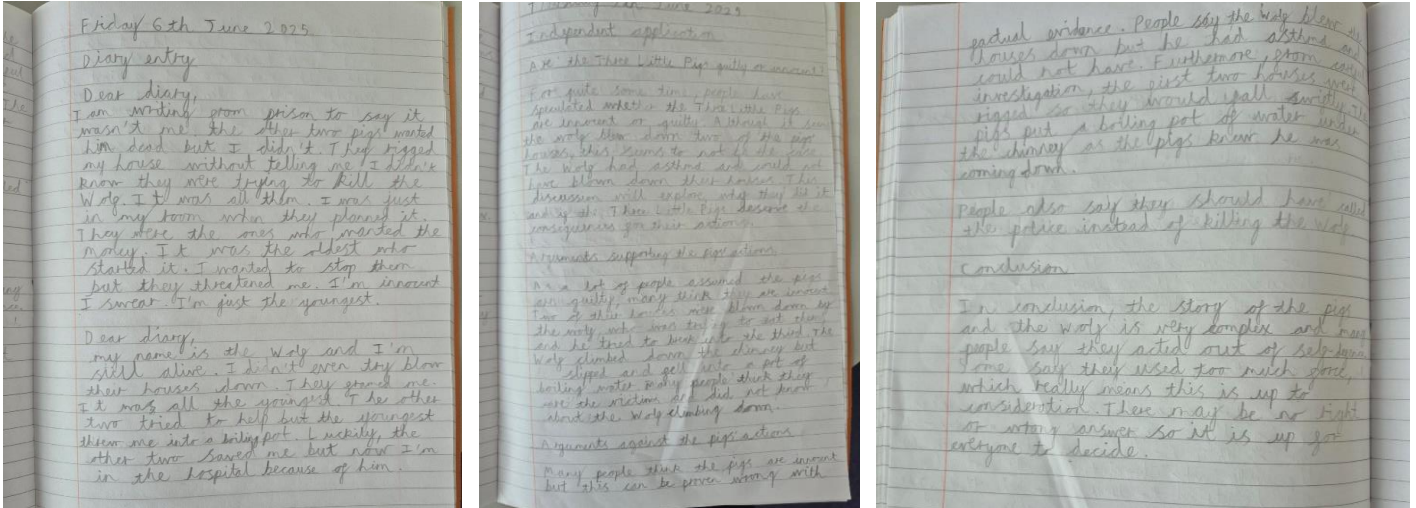 Friday 6th June 2025
Diary entry
Dear diary,
I am writing from prison to say it
wasn't me. the other two pigs wanted
him dead but I didn't. They rigged
my house without telling me. I didn't
know they were trying to kill the
Wolf. It was all them. I was just
in my room when they planned it.
They were the ones who wanted the
money. It was the oldest who
started it. I wanted to stop them
but they threatened me. I'm innocent
I swear. I'm just the youngest.
Dear diary,
my name is the Wolf and I'm
still alive. I didn't even try blow
their houses down. They framed me.
It was all the youngest. The other
two tried to help but the youngest
threw me into a boiling pot. Luckily, the
other two saved me but now I'm
in the hospital because of him.
June 2025
Independent application
Are the Three Little Pigs guilty or innocent?
For quite some time, people have
speculated whether the Three Little Pigs
are innocent or guilty. Although it
the wolf blew down two of the pigs
houses, this seems to not be the case.
The Wolf had asthma and could not
have blown down their houses. This
discussion will explore why they did it
and if the Three Little Pigs deserve the
consequences for their actions.
Arguments supporting the pigs' actions
As a lot of people assumed the pigs
are guilty, many think they are innocent
Two of their houses were blown down by
the wolf who was trying to eat them
and he tried to break into the third. The
Wolf climbed down the chimney but
slipped and fell into a pot of
boiling water many people think they
were the victims and did not know
about the Wolf climbing down.
Arguments against the pigs' actions
Many people think the pigs are innocent
but this can be proven wrong with
factual evidence. People say the Wolf blew the
houses down but he had asthma and
could not have. Furthermore, from
investigation, the first two houses were
rigged so they would fall swiftly. The
pigs put a boiling pot of water under
the chimney as the pigs knew he was
coming down.
People also say they should have called
the police instead of killing the Wolf
Conclusion
In conclusion, the story of the pigs
and the Wolf is very complex and many
people say they acted out of
some say they used too much force,
which really means this is up to
consideration. There may be no right
or wrong answer so it is up for
everyone to decide.